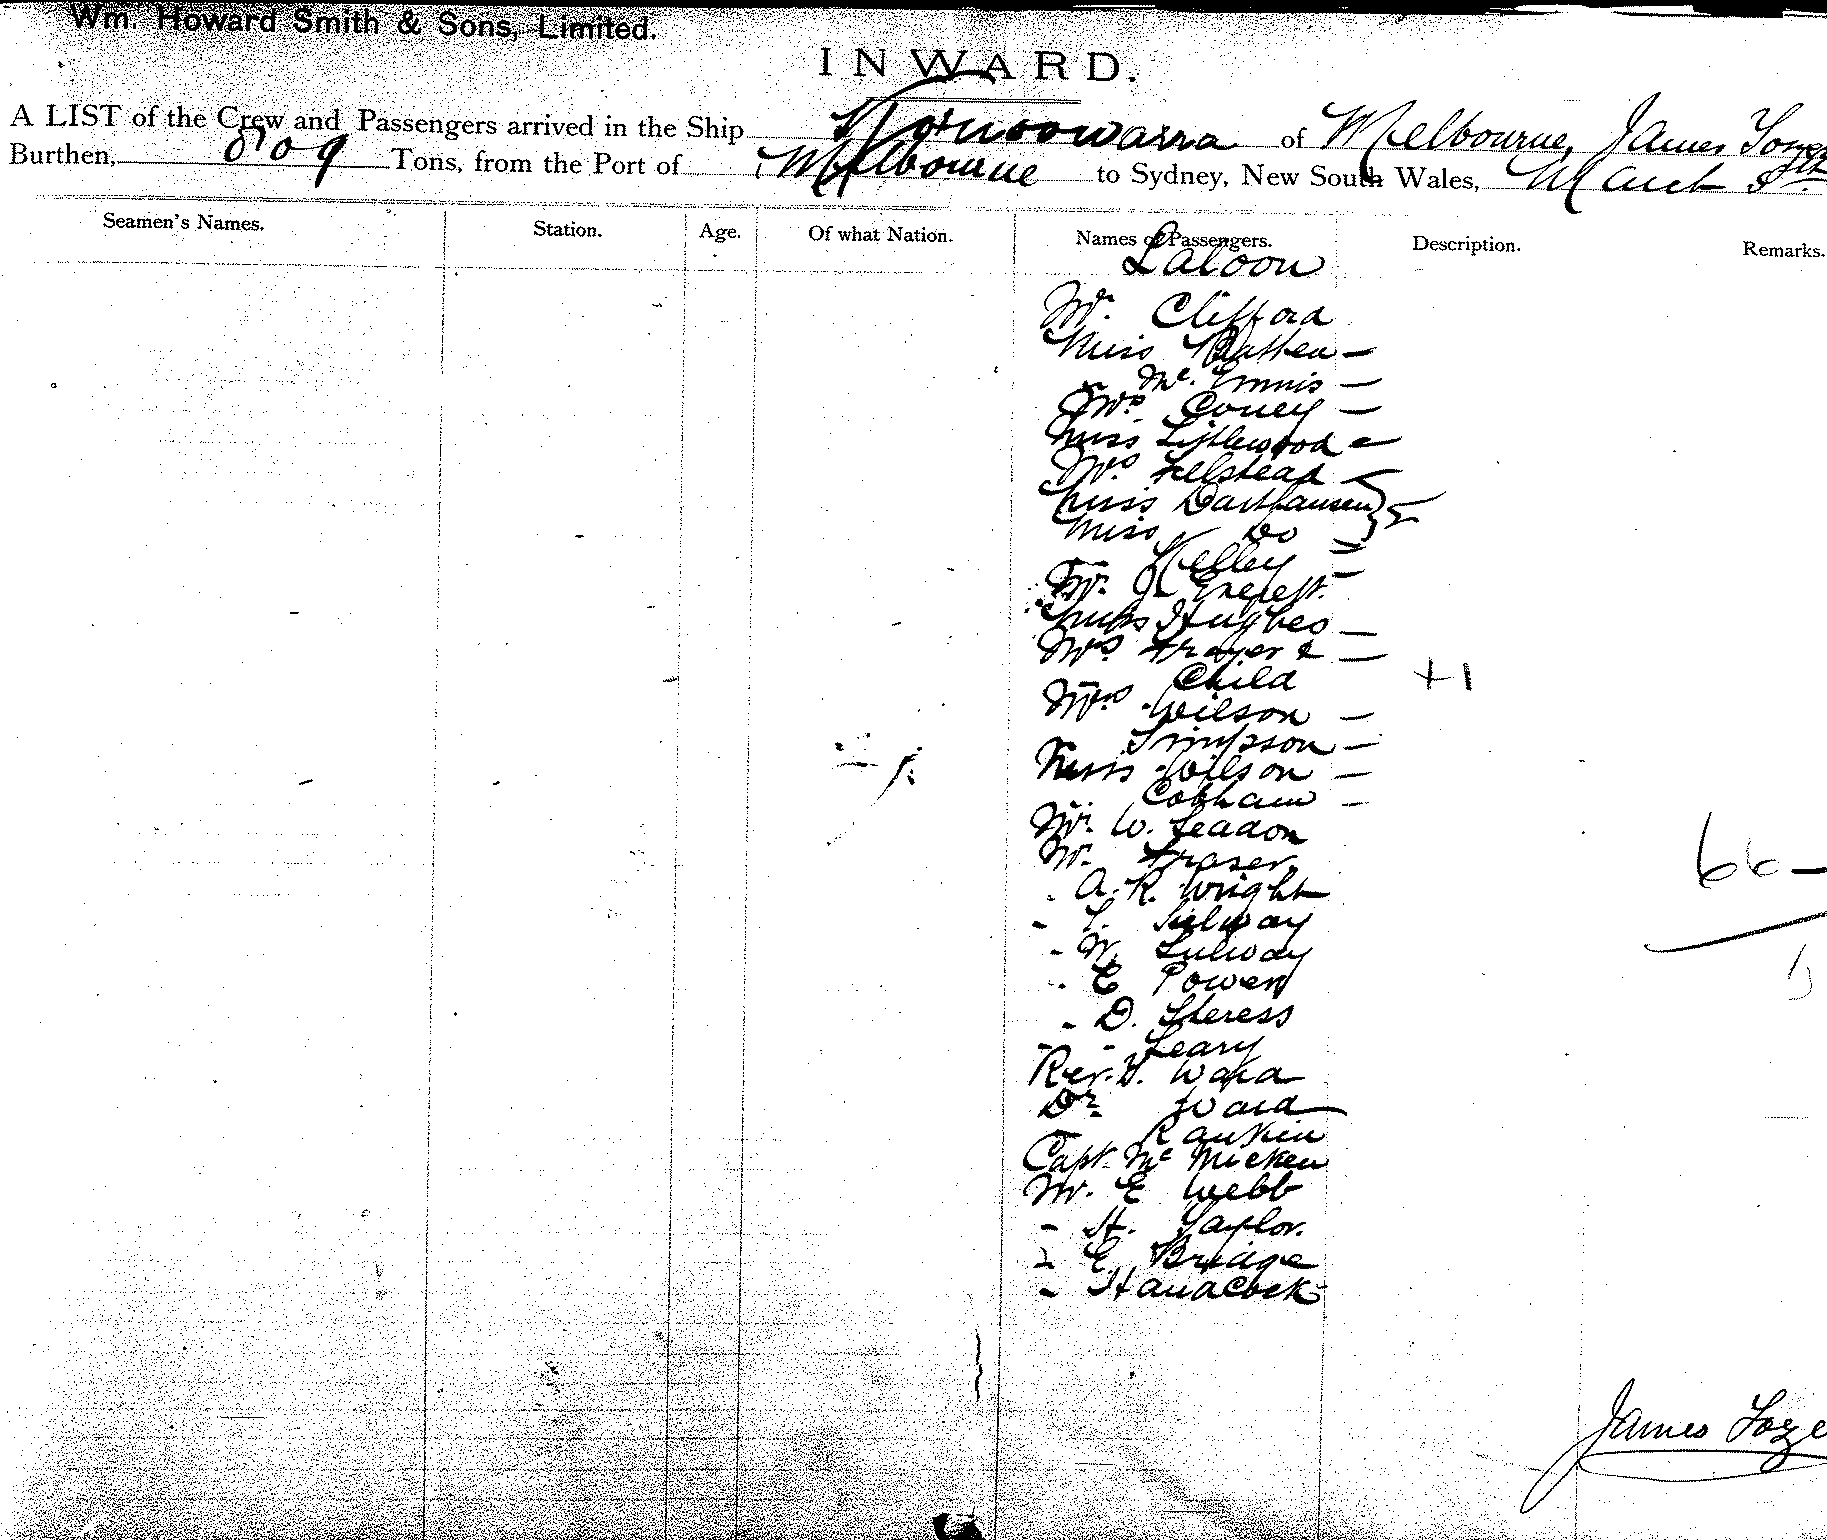 Wm. Howard Smith & Sons, Limited.
INWARD.
A LIST of the Crew and Passengers arrived in the Ship of Melbourne, James
Burthen, 809 Tons, from the Port of Melbourne to Sydney, New South Wales, March
Seamen's Names. Station. Age. Of what Nation. Names of Passengers. Description. Remarks.
Saloon
Mr. Clifford
Miss Batten —
" Mc. Ennis —
Mrs. Coney —
Miss Littlewood —
Mrs. Felstead —
Miss
Miss Do
" Kelley —
Mr. J. Everett.
Miss Hughes —
Mrs. Frazer & —
Child +1
Mrs. Wilson —
Simpson —
Miss Wilson —
Cobham —
Mr. W. Seadon
Mr. Fraser
" A. R. Wright
" Silway
" W. Silway
" E Power
" D. Steress
" " Leary
Rev. Ward
Dr. Ward
" Rankin
Capt. Mc Micken
Mr. E Webb
" H. Taylor.
" E. Bridge
" Handcock
66 —
James